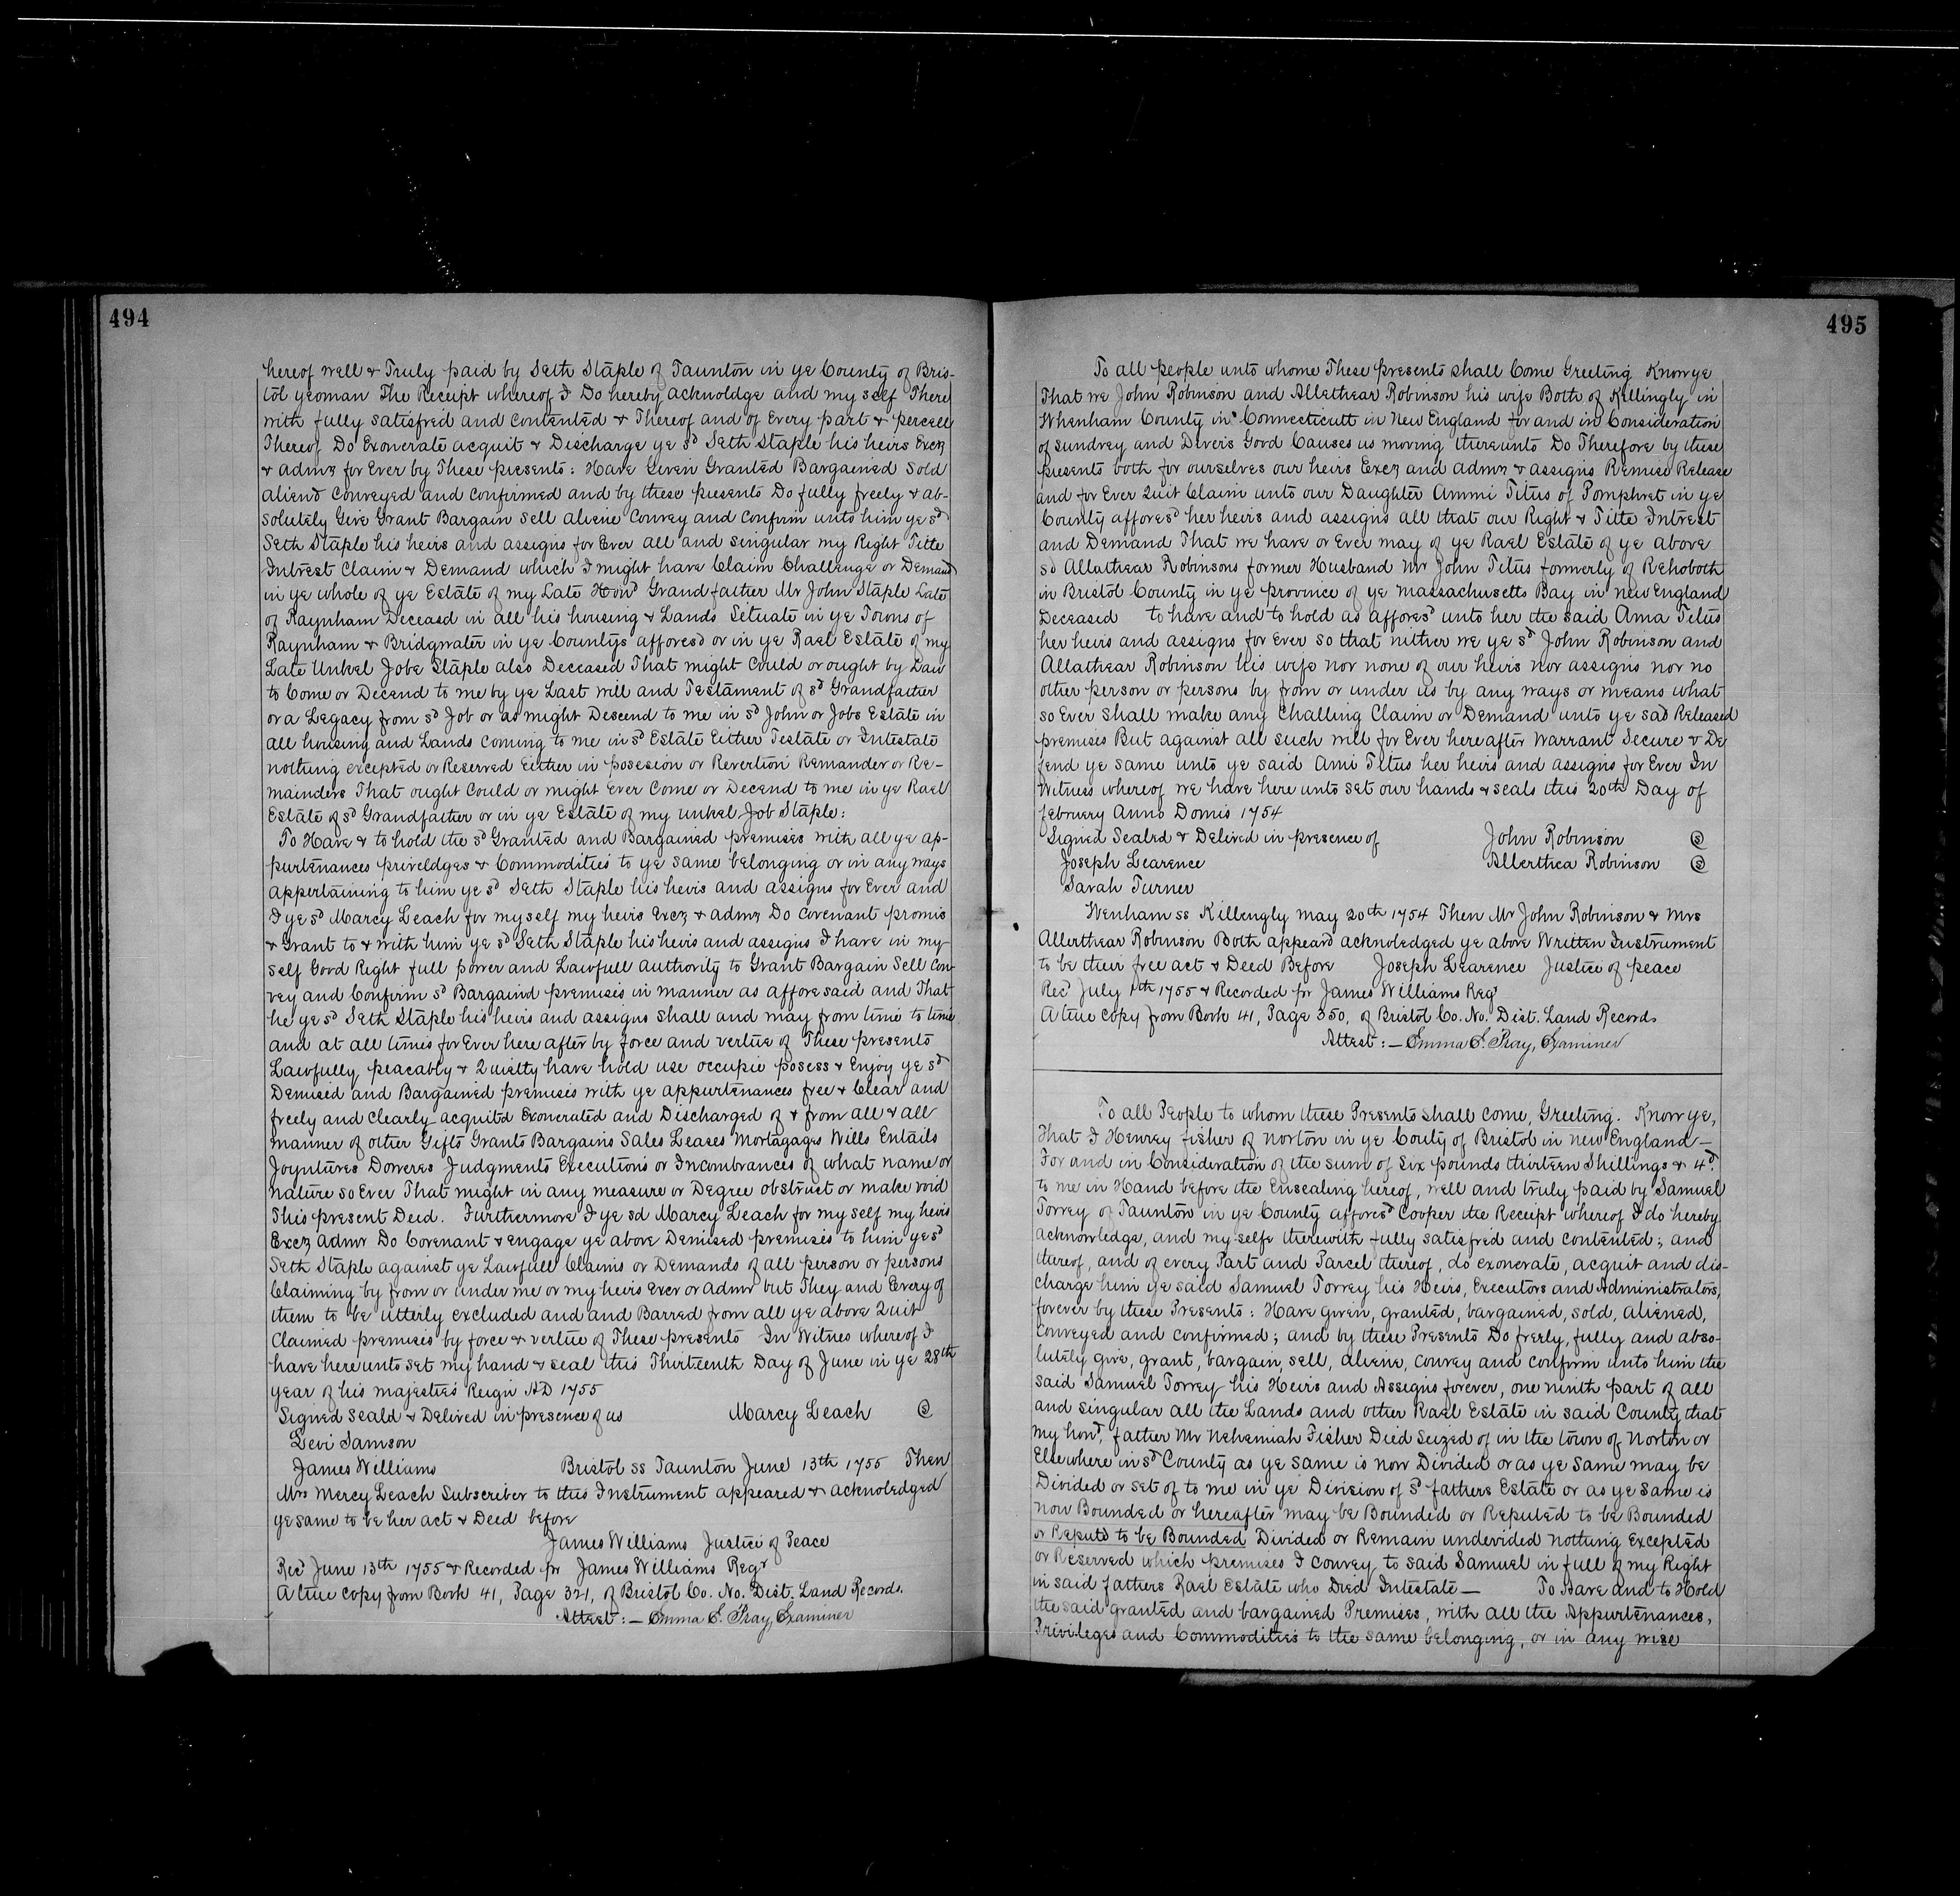 494
hereof well & Truly paid by Seth Staple of Taunton in ye County of Bris-
tol yeoman The Receipt whereof I Do hereby acknoldge and my self There
with fully satisfied and contented & Thereof and of Every part & percell
Thereof Do Exonerate acquit & Discharge ye sd Seth Staple his heirs Execz
& admrz for Ever by These presents: Have Given Granted Bargained Sold
aliend conveyed and confirmed and by these presents Do fully freely & ab-
solutely Give Grant Bargain Sell aliene Convey and Confirm unto him ye sd
Seth Staple his heirs and assigns for Ever all and singular my Right Title
Intrest Claim & Demand which I might have Claim Challenge or Demand
in ye whole of ye Estate of my Late Hond Grandfather Mr John Staple Late
of Raynham Deceasd in all his housing & Lands Situate in ye Towns of
Raynham & Bridgwater in ye Countys afforesd or in ye Rael Estate of my
Late Unkel Jobe Staple also Deceased That might Could or ought by Law
to Come or Decend to me by ye Last will and Testament of sd Grandfather
or a Legacy from sd Job or as might Descend to me in sd John or Jobs Estate in
all housing and Lands coming to me in sd Estate Either Testate or Intestate
nothing excepted or Reserved Either in posesion or Revertion Remander or Re-
mainders That ought Could or might Ever Come or Decend to me in ye Rael
Estate of sd Grandfather or in ye Estate of my unkel Job Staple:
To Have & to hold the sd Granted and Bargained premises with all ye ap-
purtenances priveldges & Commodities to ye same belonging or in any ways
appertaining to him ye sd Seth Staple his heirs and assigns for Ever and
I ye sd Marcy Leach for myself my heirs Execz & admrz Do covenant promis
& Grant to & with him ye sd Seth Staple his heirs and assigns I have in my
self Good Right full power and Lawfull authority to Grant Bargain Sell Con-
vey and Confirm sd Bargaind premises in manner as afforesaid and That
he ye sd Seth Staple his heirs and assigns shall and may from time to time
and at all times for Ever here after by force and vertue of These presents
Lawfully, peacably & Quietly have hold use occupie posess & Enjoy ye sd
Demised and Bargained premises with ye appurtenances free & Clear and
freely and clearly acquitd Exonerated and Discharged of & from all & all
manner of other Gifts Grants Bargains Sales Leases Mortagages Wills Entails
Joyntures Doweres Judgments Executions or Incombrances of what name or
nature so Ever That might in any measure or Degree obstruct or make void
This present Deed. Furthermore I ye sd Marcy Leach for my self my heirs
Execz admr Do Covenant & engage ye above Demised premises to him ye sd
Seth Staple against ye Lawfull Claims or Demands of all person or persons
Claiming by from or under me or my heirs Exer or Admr but They and Every of
them to be utterly excluded and and Barred from all ye above Quit
Claimed premises by force & vertue of These presents In Witnes whereof I
have here unto set my hand & seal this Thirteenth Day of June in ye 28th
year of his majesties Reign AD 1755
Signed Seald & Delived in presence of us Marcy Leach S
Levi Samson
James Williams Bristol ss Taunton June 13th 1755 Then
Mrs Mercy Leach Subscriber to this Instrument appeared & acknoledged
ye same to be her act & Deed before
James Williams Justice of Peace
Recd June 13th 1755 & Recorded pr James Williams Regr
A true copy from Book 41, Page 321, of Bristol Co. No. Dist. Land Records.
Attest:— Emma S. Pray, Examiner
495
To all people unto whome These presents shall Come Greeting Know ye
That we John Robinson and Allathear Robinson his wife Both of Killingly in
Whenham County in Connecticutt in New England for and in Consideration
of sundrey and Divers Good Causes us moving thereunto Do Therefore by these
presents both for ourselves our heirs Execz and admrz & assigns Remise Release
and for Ever Quit Claim unto our Daughter Ammi Titus of Pomphret in ye
County afforesd her heirs and assigns all that our Right & Title Intrest
and Demand That we have or Ever may of ye Rael Estate of ye above
sd Allathear Robinsons former Husband Mr John Titus formerly of Rehoboth
in Bristol County in ye province of ye Massachusetts Bay in new England
Deceased to have and to hold as afforesd unto her the said Ama Titus
her heirs and assigns for Ever so that nither we ye sd John Robinson and
Allathear Robinson his wife nor none of our heirs nor assigns nor no
other person or persons by from or under us by any ways or means what
so Ever shall make any Challing Claim or Demand unto ye sad Released
premises But against all such will for Ever hereafter Warrant Secure & De
fend ye same unto ye said Ami Titus her heirs and assigns for Ever In
Witness whereof we have here unto set our hands & seals this 20th Day of
february Anno Domis 1754
Signed Sealrd & Delived in presence of John Robinson S
Joseph Learence Allerthea Robinson S
Sarah Turner
Wenham ss Killengly may 20th 1754 Then Mr John Robinson & Mrs
Allerthear Robinson Both appeard acknoledged ye above Written Instrument
to be their free act & Deed Before Joseph Learence Justice of peace
Recd July 1th 1755 & Recorded pr James Williams Regr
A true copy from Book 41, Page 350, of Bristol Co. No. Dist. Land Records
Attest:— Emma S. Pray, Examiner
To all People to whom these Presents shall come, Greeting. Know ye,
That I Henrey fisher of norton in ye Couty of Bristol in new England—
For and in Consideration of the sum of Six pounds thirteen Shillings & 4d.
to me in Hand before the Ensealing hereof, well and truly paid by Samuel
Torrey of Taunton in ye County afforesd Cooper the Receipt whereof I do hereby
acknowledge, and my selfe therewith fully satisfied and contented; and
thereof, and of every Part and Parcel thereof, do exonerate, acquit and dis-
charge him ye said Samuel Torrey his Heirs, Executors and Administrators,
forever by these Presents: Have given, granted, bargained, sold, aliened,
conveyed and confirmed; and by these Presents Do freely, fully and abso-
lutely give, grant, bargain, sell, aliene, convey and confirm unto him the
said Samuel Torrey his Heirs and Assigns forever, one ninth part of all
and singular all the Lands and other Rael Estate in said County that
my hond, father Mr Nehemiah Fisher Died Seized of in the town of Norton or
Elsewhere in sd County as ye same is now Divided or as ye Same may be
Divided or set of to me in ye Division of sd fathers Estate or as ye same is
now Bounded or hereafter may be Bounded or Reputed to be Bounded
or Reputd to be Bounded Divided or Remain undevided nothing Excepted
or Reserved which premises I convey to said Samuel in full of my Right
in said fathers Rael Estate who Died Intestate— To Have and to Hold
the said granted and bargained Premises, with all the Appurtenances,
Privileges and Commodities to the same belonging, or in any wise